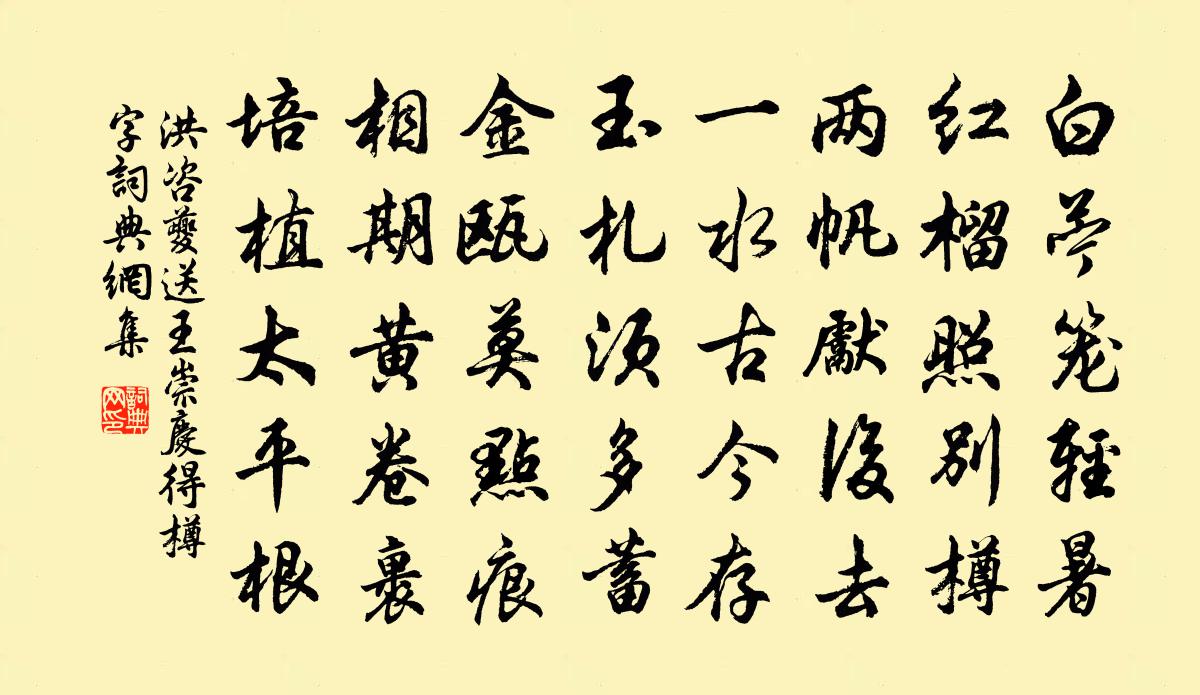 白苎笼輕暑
红榴照别樽
两帆獻後去
一水古今存
玉札须多蓄
金瓯莫點痕
相期黄卷裏
培植太平根
洪咨夔送王崇慶得樽
字詞典網集
詞典
网印